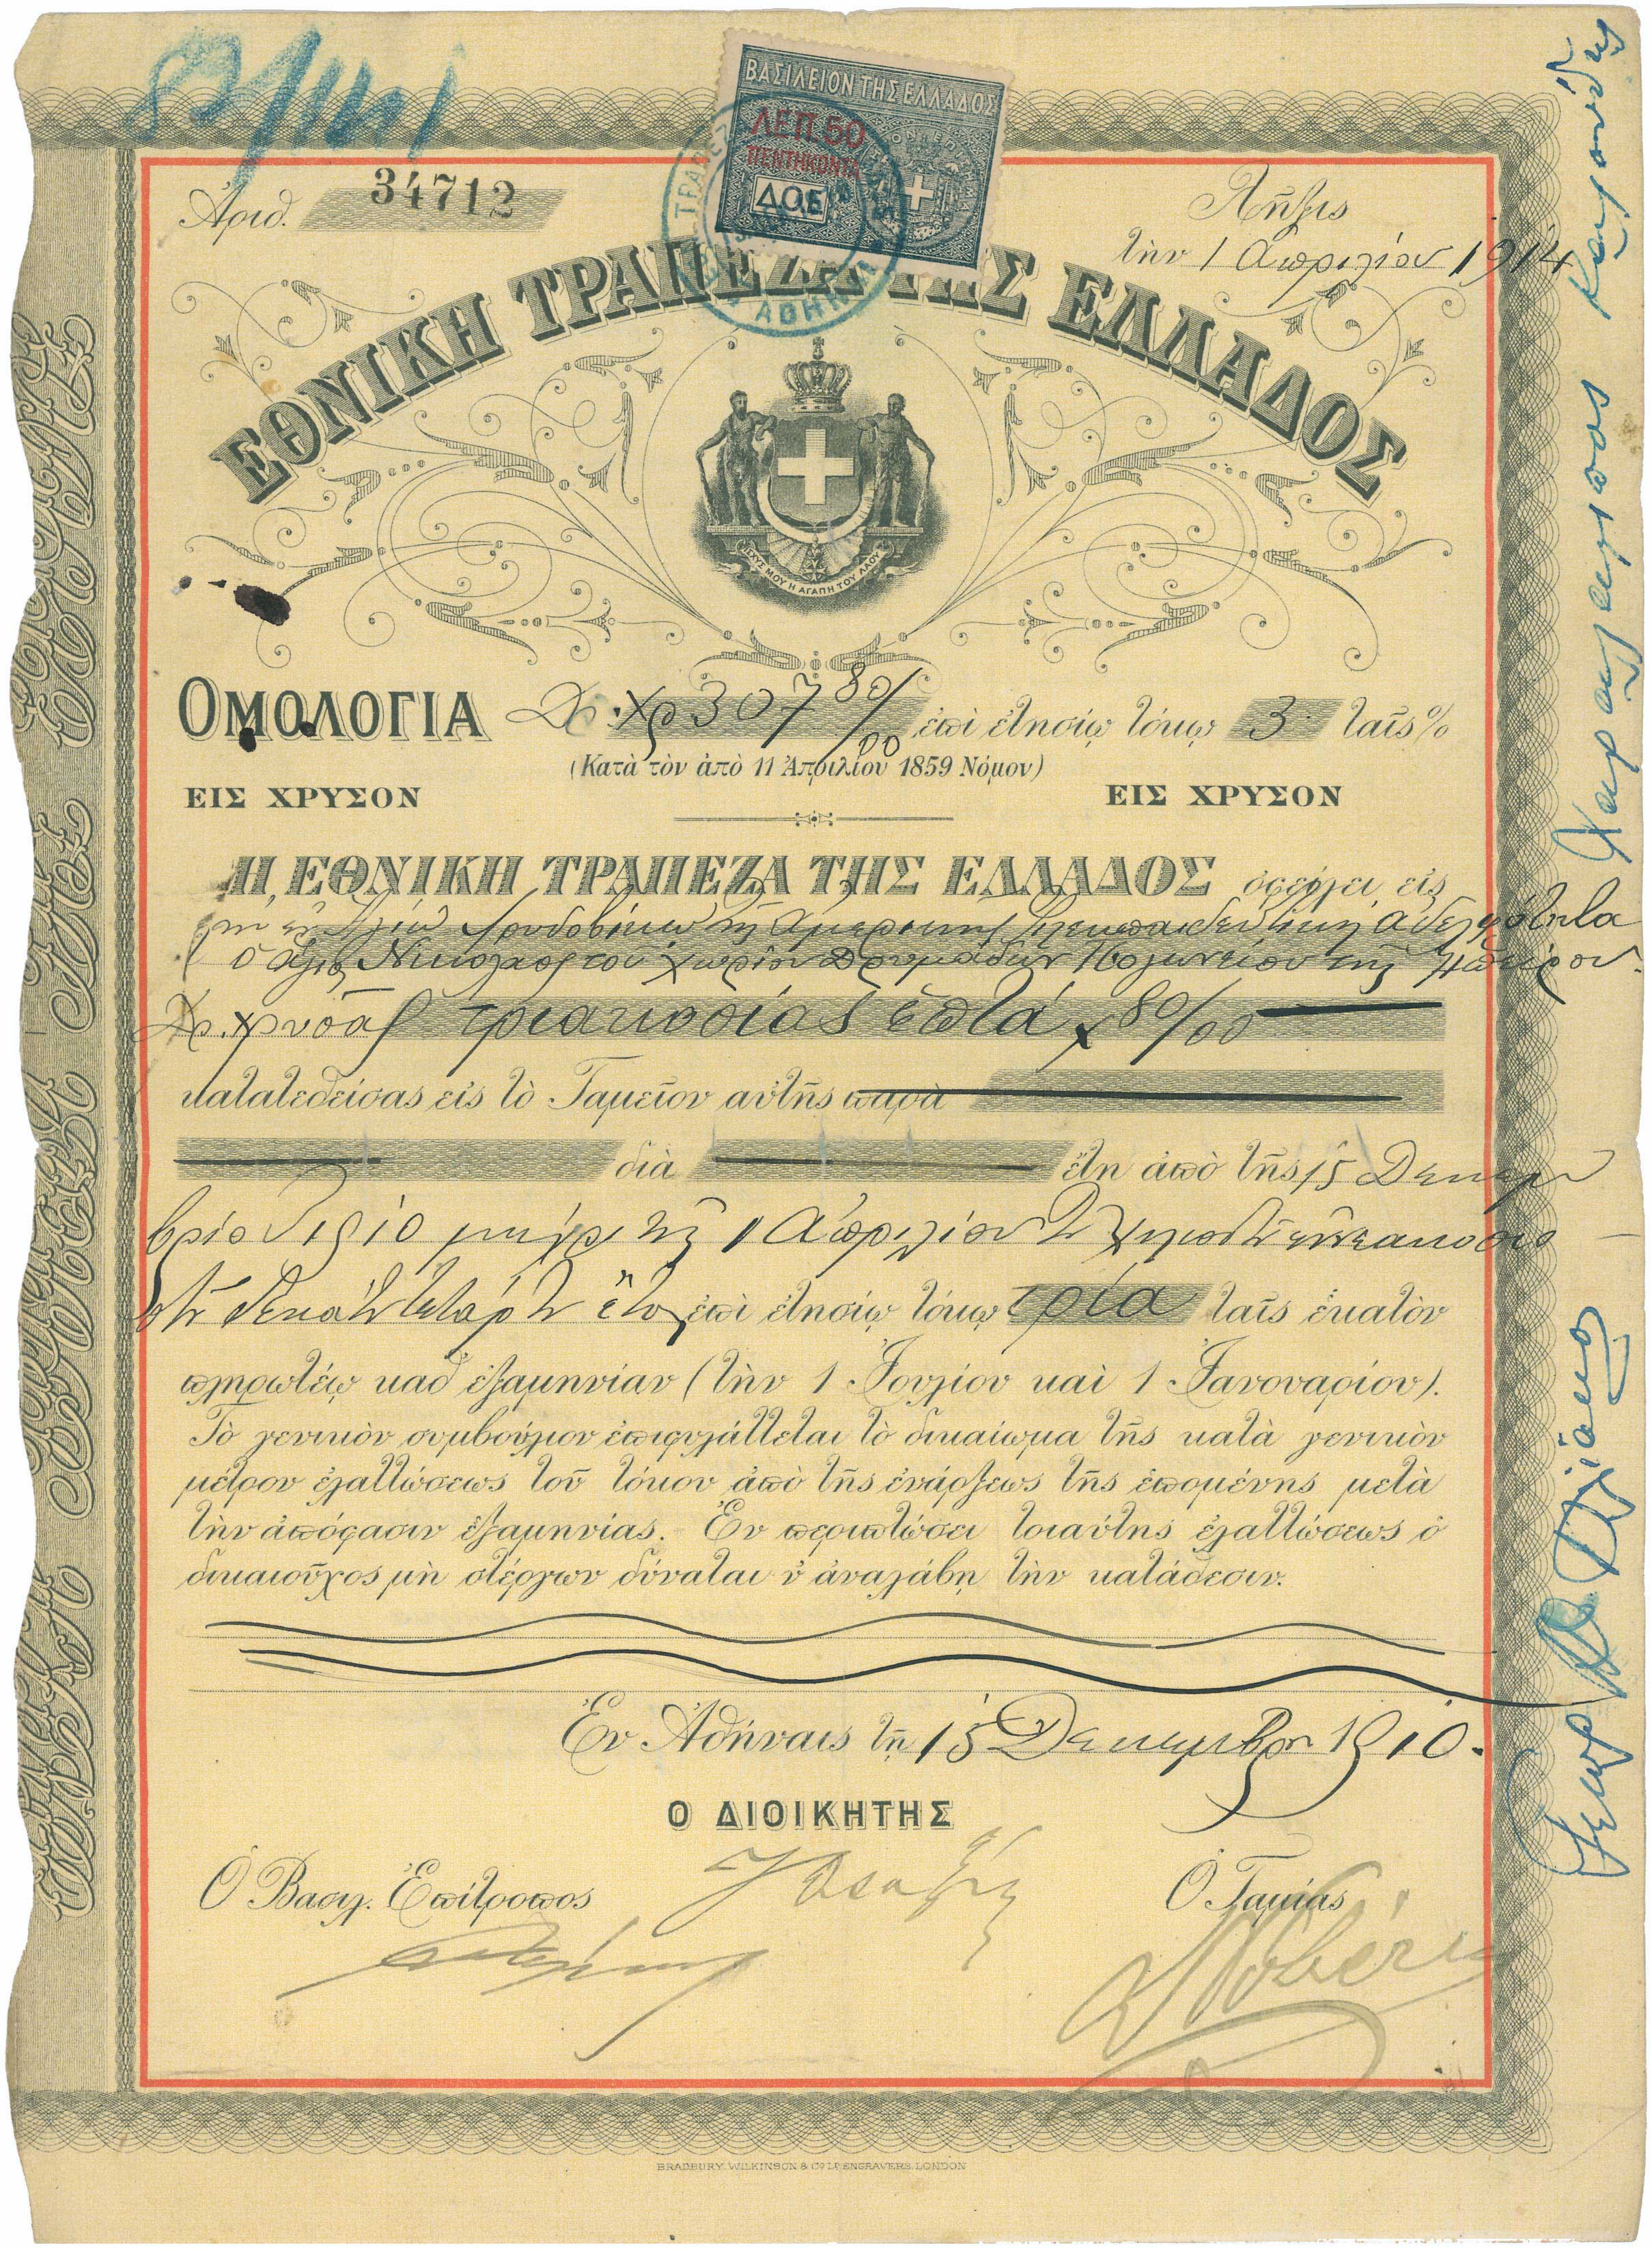 ΒΑΣΙΛΕΙΟΝ ΤΗΣ ΕΛΛΑΔΟΣ
ΛΕΠ. 50
ΠΕΝΤΗΚΟΝΤΑ
ΔΟΕ
Ἀριθ. 34712
Λῆξις
τὴν 1 Ἀπριλίου 1914
ΕΘΝΙΚΗ ΤΡΑΠΕΖΑ ΤΗΣ ΕΛΛΑΔΟΣ
ΙΣΧΥΣ ΜΟΥ Η ΑΓΑΠΗ ΤΟΥ ΛΑΟΥ
ΟΜΟΛΟΓΙΑ Δρ. χρ 307 80/00 ἐπὶ ἐτησίῳ τόκῳ 3 τοῖς %
(Κατὰ τὸν ἀπὸ 11 Ἀπριλίου 1859 Νόμον)
ΕΙΣ ΧΡΥΣΟΝ ΕΙΣ ΧΡΥΣΟΝ
Η ΕΘΝΙΚΗ ΤΡΑΠΕΖΑ ΤΗΣ ΕΛΛΑΔΟΣ ὀφείλει εἰς
τῆς Ἀμερικῆς Φιλεκπαιδευτικὴν Ἀδελφότητα
ὁ Ἅγιος Νικόλαος τοῦ χωρίου Δρυμάδων Πωγωνίου τῆς Ἠπείρου
Δρ. χρυσᾶς τριακοσίας ἑπτά χ 80/00
κατατεθείσας εἰς τὸ Ταμεῖον αὐτῆς παρὰ
διὰ ἔτη ἀπὸ τῆς 15 Δεκεμ
βρίου 1910 μέχρι τῆς 1 Ἀπριλίου τοῦ χιλιοστοῦ ἐννεακοσιο
στοῦ δεκάτου τετάρτου ἔτους ἐπὶ ἐτησίῳ τόκῳ τρία τοῖς ἑκατὸν
πληρωτέῳ καθ' ἑξαμηνίαν (τὴν 1 Ἰουλίου καὶ 1 Ἰανουαρίου).
Τὸ γενικὸν συμβούλιον ἐπιφυλάττεται τὸ δικαίωμα τῆς κατὰ γενικὸν
μέτρον ἐλαττώσεως τοῦ τόκου ἀπὸ τῆς ἐνάρξεως τῆς ἑπομένης μετὰ
τὴν ἀπόφασιν ἑξαμηνίας. Ἐν περιπτώσει τοιαύτης ἐλαττώσεως ὁ
δικαιοῦχος μὴ στέργων δύναται ν' ἀναλάβῃ τὴν κατάθεσιν.
Ἐν Ἀθήναις τῇ 15 Δεκεμβρίου 1910.
Ο ΔΙΟΙΚΗΤΗΣ
Ὁ Βασιλ. Ἐπίτροπος Ὁ Ταμίας
BRADBURY, WILKINSON & Cº Lᴰ ENGRAVERS, LONDON